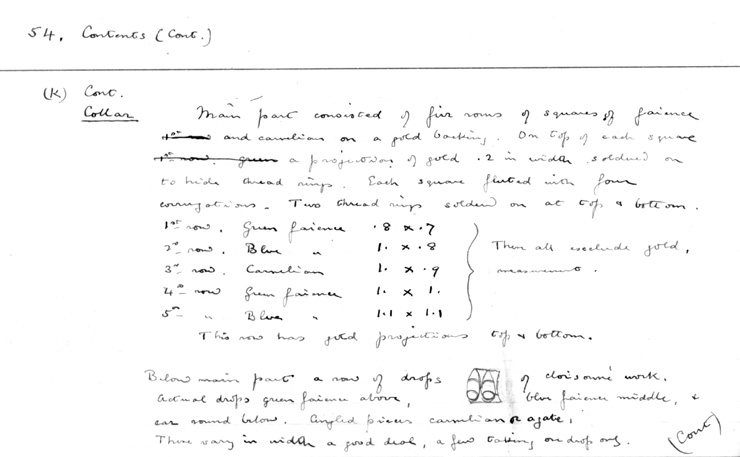 54. Contents (Cont.)
(K) Cont.
Collar
Main part consisted of five rows of squares of faience
1st row and carnelian on a gold backing. On top of each square
1st row. green a projection of gold .2 in width soldered on
to hide thread rings. Each square fluted with four
corrugations. Two thread rings soldered on at top & bottom.
1st row. Green faience .8 x .7
2nd row. Blue " 1. x .8
3rd row. Carnelian 1. x .9
4th row Green faience 1. x 1.
5th " Blue " 1.1 x 1.1
These all exclude gold,
measurements.
This row has gold projections top & bottom.
Below main part a row of drops of cloisonné work.
Actual drops green faience above, blue faience middle, &
car round below. Angled pieces carnelian or agate,
These vary in width a good deal, a few taking one drop only.
(Cont)